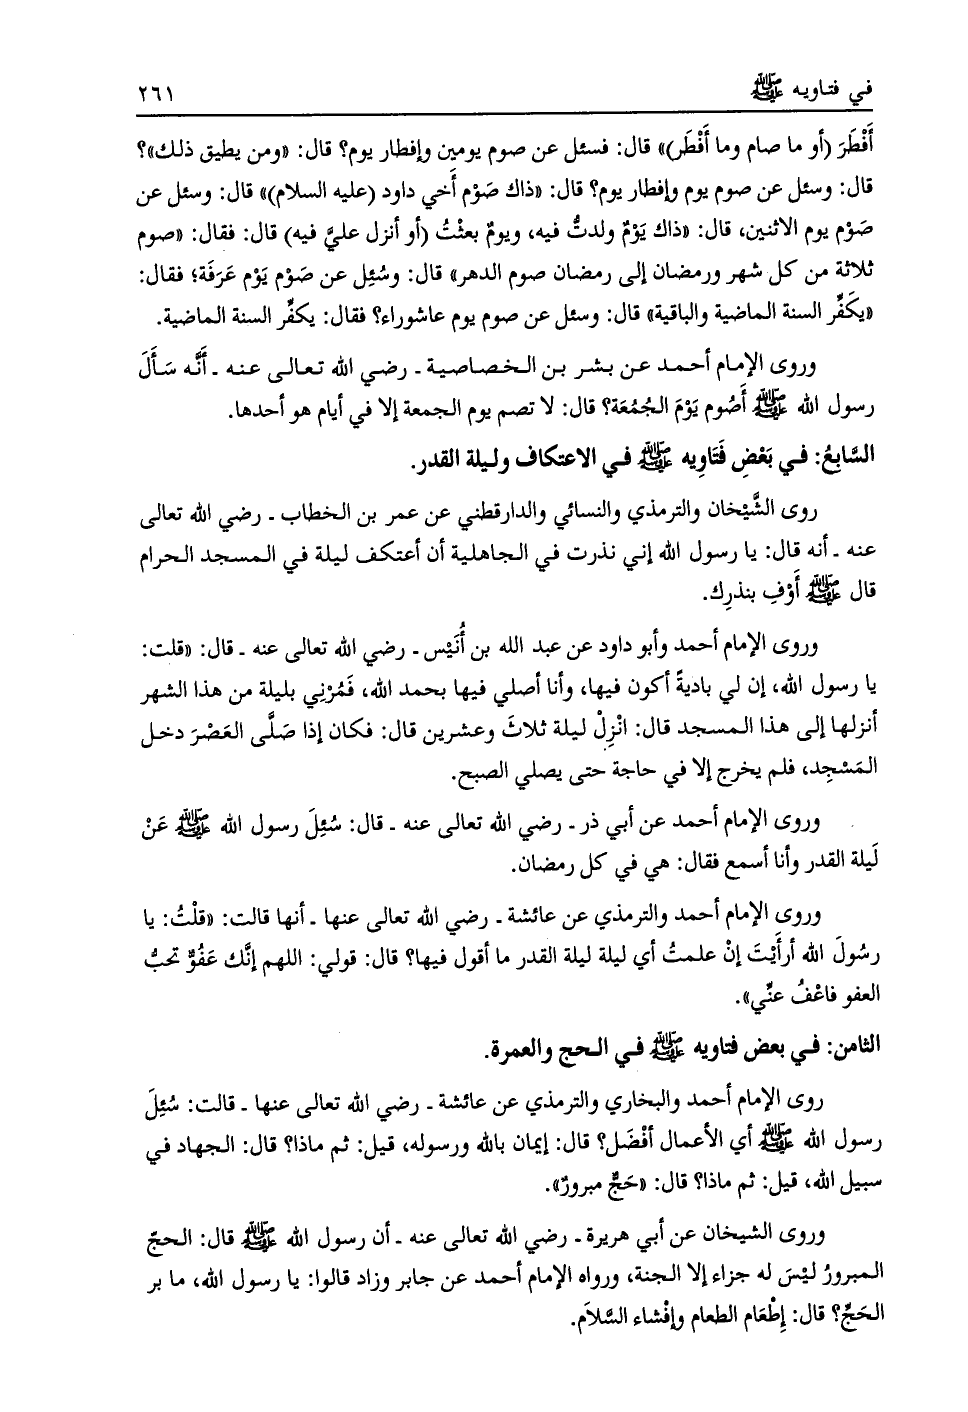 في فتاويه ﷺ ٢٦١
أَفْطَرَ (أو ما صام وما أَفْطَر)» قال: فسئل عن صوم يومين وإفطار يوم؟ قال: «ومن يطيق ذلك»؟
قال: وسئل عن صوم يوم وإفطار يوم؟ قال: «ذاك صَوْم أَخي داود (عليه السلام)» قال: وسئل عن
صَوْم يوم الاثنين، قال: «ذاك يَوْمٌ ولدتُّ فيه، ويومٌ بعثْتُ (أو أنزل عليَّ فيه) قال: فقال: «صوم
ثلاثة من كل شهر ورمضان إلى رمضان صوم الدهر» قال: وسُئِل عن صَوْم يَوْم عَرَفَة؛ فقال:
«يكَفِّر السنة الماضية والباقية» قال: وسئل عن صوم يوم عاشوراء؟ فقال: يكفِّر السنة الماضية.
وروى الإمام أحمد عن بشر بن الخصاصية ـ رضي الله تعالى عنه ـ أَنَّه سَأَلَ
رسول الله ﷺ أَصُوم يَوْمَ الجُمُعَة؟ قال: لا تصم يوم الجمعة إلا في أيام هو أحدها.
السَّابعُ: في بَعْضِ فَتَاوِيه ﷺ في الاعتكاف وليلة القدر.
روى الشَّيْخان والترمذي والنسائي والدارقطني عن عمر بن الخطاب ـ رضي الله تعالى
عنه ـ أنه قال: يا رسول الله إني نذرت في الجاهلية أن أعتكف ليلة في المسجد الحرام
قال ﷺ أَوْفِ بنذرِك.
وروى الإمام أحمد وأبو داود عن عبد الله بن أُنَيْس ـ رضي الله تعالى عنه ـ قال: «قلت:
يا رسول الله، إن لي باديةً أكون فيها، وأنا أصلي فيها بحمد الله، فَمُرْنِي بليلة من هذا الشهر
أنزلها إلى هذا المسجد قال: انْزِلْ ليلة ثلاثَ وعشرين قال: فكان إذا صَلَّى العَصْرَ دخل
المَسْجِد، فلم يخرج إلا في حاجة حتى يصلي الصبح.
وروى الإمام أحمد عن أبي ذر ـ رضي الله تعالى عنه ـ قال: سُئِلَ رسول الله ﷺ عَنْ
لَيلة القدر وأنا أسمع فقال: هي في كل رمضان.
وروى الإمام أحمد والترمذي عن عائشة ـ رضي الله تعالى عنها ـ أنها قالت: «قلْتُ: يا
رسُولَ الله أرأَيْتَ إنْ علمتُ أي ليلة ليلة القدر ما أقول فيها؟ قال: قولي: اللهم إنَّك عَفُوٌّ تحبُّ
العفو فاعْفُ عنِّي».
الثامن: في بعض فتاويه ﷺ في الحج والعمرة.
روى الإمام أحمد والبخاري والترمذي عن عائشة ـ رضي الله تعالى عنها ـ قالت: سُئِلَ
رسول الله ﷺ أي الأعمال أفْضَل؟ قال: إيمان بالله ورسوله، قيل: ثم ماذا؟ قال: الجهاد في
سبيل الله، قيل: ثم ماذا؟ قال: «حَجٌّ مبرورٌ».
وروى الشيخان عن أبي هريرة ـ رضي الله تعالى عنه ـ أن رسول الله ﷺ قال: الحجّ
المبرورُ ليْسَ له جزاء إلا الجنة، ورواه الإمام أحمد عن جابر وزاد قالوا: يا رسول الله، ما بر
الحَجِّ؟ قال: إِطْعَام الطعام وإفْشاء السَّلاَم.